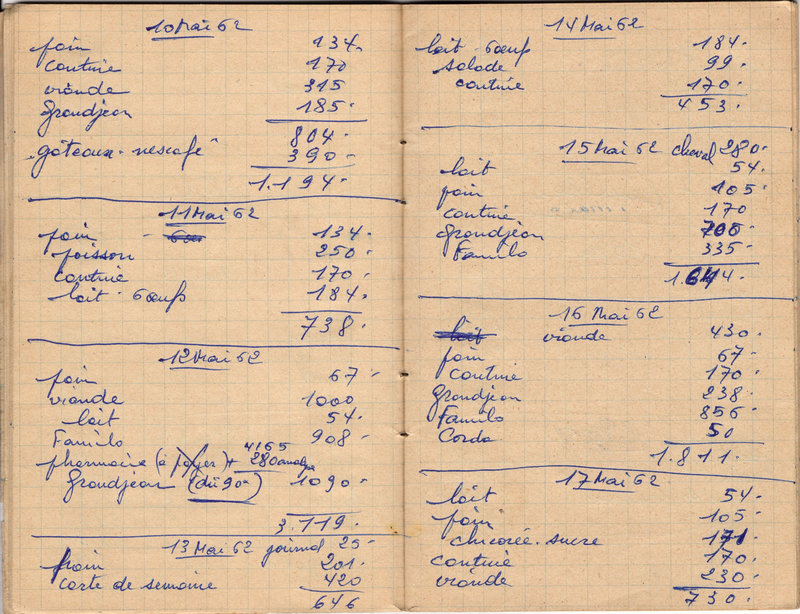 10 Mai 62
pain 134.
cantine 170
viande 315
Grandjean 185.
804.
gâteaux - nescafé 390.
1.194.
11 Mai 62
pain 134.
poisson 250.
cantine 170.
lait - 6 oeufs 184.
738.
12 Mai 62
pain 67 -
viande 1000
lait 54.
Familo 908.
4165
pharmacie (à payer) + 280 analyse
Grandjean (dû 90-) 1090.
3.119.
13 Mai 62 journal 25-
pain 201.
carte de semaine 420
646
14 Mai 62
lait - 6 oeufs 184.
salade 99.
cantine 170.
453.
15 Mai 62 cheval 280.
lait 54.
pain 105.
cantine 170
Grandjean 700
Familo 335.
1.644.
16 Mai 62
lait viande 430.
pain 67.
cantine 170.
Grandjean 238.
Familo 856.
Corda 50
1.811.
17 Mai 62
lait 54.
pain 105.
chicorée - sucre 171.
cantine 170.
viande 230.
730.